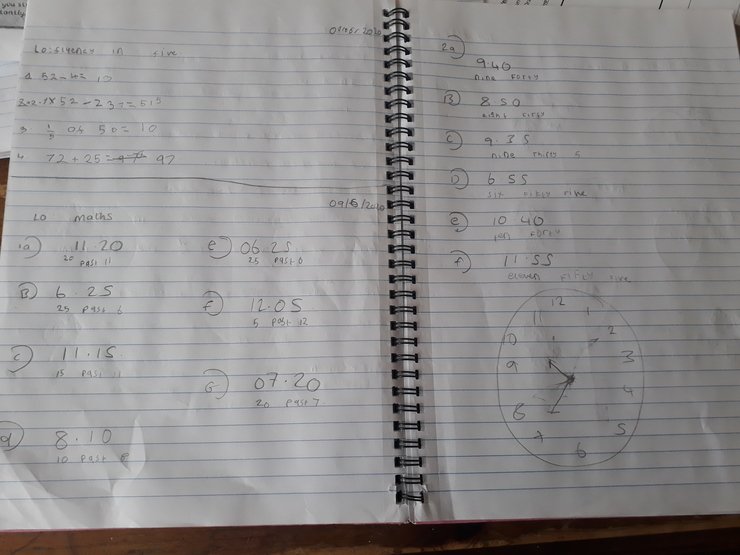 LO: fluency in five
3 1/5 of 50 = 10
4. 72 + 25 = 97 97
LO maths
1a) 11.20
20 past 11
B) 6.25
25 past 6
c) 11.15
15 past 11
d) 8.10
10 past 8
e) 06.25
25 past 6
f) 12.05
5 past 12
G) 07.20
20 past 7
2a) 9.40
nine forty
B) 8.50
c) 9.35
nine thirty 5
D) 6.55
six fifty five
e) 10.40
ten forty
f) 11.55
eleven fifty five
12
11 1
10 2
9 3
8 4
7 5
6